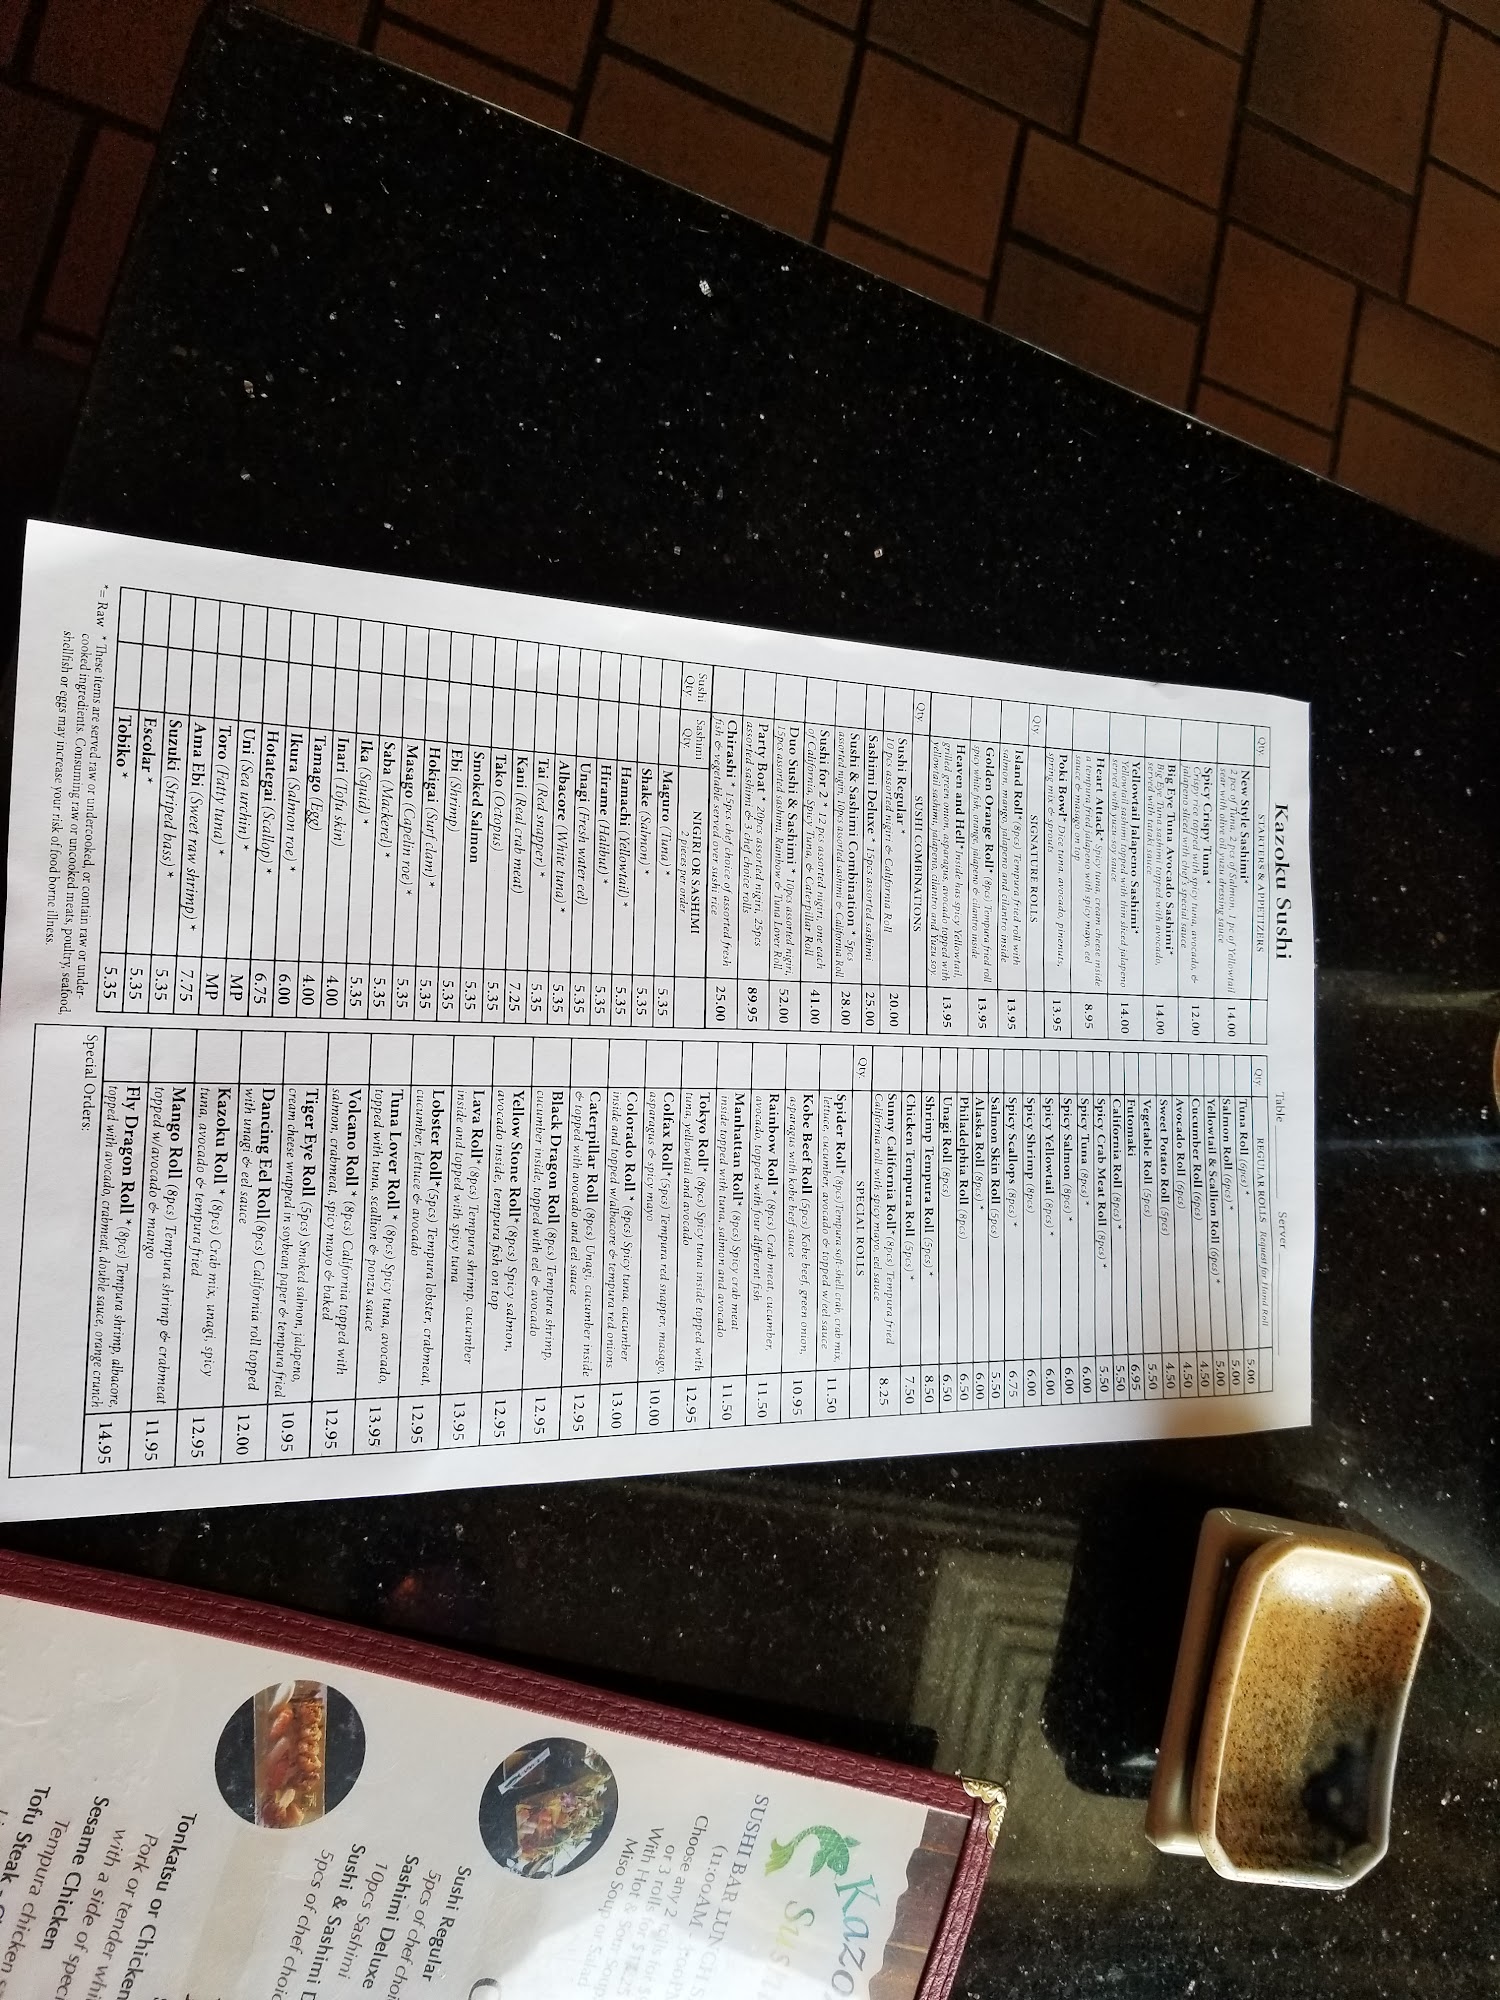 Kazoku Sushi
Qty. STARTERS & APPETIZERS
New Style Sashimi* 14.00
2 pcs of Tuna, 2 pcs of Salmon, 1 pc of Yellowtail
sear with ultra oil, yuzu dressing sauce
Spicy Crispy Tuna* 12.00
Crispy rice topped with spicy tuna, avocado, &
jalapeno sliced with chef's special sauce
Big Eye Tuna Avocado Sashimi* 14.00
Big Eye Tuna sashimi topped with avocado,
served with tataki sauce
Yellowtail Jalapeno Sashimi* 14.00
Yellowtail sashimi topped with thin sliced jalapeno
served with yuzu soy sauce
Heart Attack* Spicy tuna, cream cheese inside 8.95
a tempura fried jalapeno with spicy mayo, eel
sauce & mango on top
Poki Bowl* Dice tuna, avocado, pinenuts, 13.95
spring mix & sprouts
Qty. SIGNATURE ROLLS
Island Roll* (8pcs) Tempura fried roll with 13.95
salmon, mango, jalapeno and cilantro inside
Golden Orange Roll* (8pcs) Tempura fried roll 13.95
spicy white fish, orange, jalapeno & cilantro inside
Heaven and Hell* Inside has spicy Yellowtail, 13.95
grilled green onion, asparagus, avocado topped with
yellowtail sashimi, jalapeno, cilantro and Yuzu soy
Qty. SUSHI COMBINATIONS
Sushi Regular * 20.00
10 pcs assorted nigiri & California Roll
Sashimi Deluxe * 15pcs assorted sashimi 25.00
Sushi & Sashimi Combination * 5pcs 28.00
assorted nigiri, 10pcs assorted sashimi & California Roll
Sushi for 2 * 12 pcs assorted nigiri, one each 41.00
of California, Spicy Tuna, & Caterpillar Roll
Duo Sushi & Sashimi * 10pcs assorted nigiri, 52.00
15pcs assorted sashimi, Rainbow & Tuna Lover Roll
Party Boat * 20pcs assorted nigiri, 25pcs 89.95
assorted sashimi & 3 chef choice rolls
Chirashi * 15pcs chef choice of assorted fresh 25.00
fish & vegetable served over sushi rice
Sushi Qty. Sashimi Qty. NIGIRI OR SASHIMI
2 pieces per order
Maguro (Tuna) * 5.35
Shake (Salmon) * 5.35
Hamachi (Yellowtail) * 5.35
Hirame (Halibut) * 5.35
Unagi (Fresh water eel) 5.35
Albacore (White tuna) * 5.35
Tai (Red snapper) * 5.35
Kani (Real crab meat) 7.25
Tako (Octopus) 5.35
Smoked Salmon 5.35
Ebi (Shrimp) 5.35
Hokigai (Surf clam) * 5.35
Masago (Capelin roe) * 5.35
Saba (Mackerel) * 5.35
Ika (Squid) * 5.35
Inari (Tofu skin) 4.00
Tamago (Egg) 4.00
Ikura (Salmon roe) * 6.00
Hotategai (Scallop) * 6.75
Uni (Sea urchin) * MP
Toro (Fatty tuna) * MP
Ama Ebi (Sweet raw shrimp) * 7.75
Suzuki (Striped bass) * 5.35
Escolar * 5.35
Tobiko * 5.35
*= Raw * These items are served raw or undercooked, or contain raw or under-
cooked ingredients. Consuming raw or uncooked meats, poultry, seafood,
shellfish or eggs may increase your risk of food borne illness.
Table Server
Qty. REGULAR ROLLS Request for Hand Roll
Tuna Roll (6pcs) * 5.00
Salmon Roll (6pcs) * 5.00
Yellowtail & Scallion Roll (6pcs) * 5.00
Cucumber Roll (6pcs) 4.50
Avocado Roll (6pcs) 4.50
Sweet Potato Roll (5pcs) 4.50
Vegetable Roll (5pcs) 5.50
Futomaki 6.95
California Roll (8pcs) * 5.50
Spicy Crab Meat Roll (8pcs) * 5.50
Spicy Tuna (8pcs) * 6.00
Spicy Salmon (8pcs) * 6.00
Spicy Yellowtail (8pcs) * 6.00
Spicy Shrimp (8pcs) 6.00
Spicy Scallops (8pcs) * 6.75
Salmon Skin Roll (5pcs) 5.50
Alaska Roll (8pcs) * 6.00
Philadelphia Roll (8pcs) 6.50
Unagi Roll (8pcs) 6.50
Shrimp Tempura Roll (5pcs) * 8.50
Chicken Tempura Roll (5pcs) * 7.50
Sunny California Roll* (8pcs) Tempura fried 8.25
California roll with spicy mayo, eel sauce
Qty. SPECIAL ROLLS
Spider Roll* (8pcs) Tempura soft-shell crab, crab mix, 11.50
lettuce, cucumber, avocado & topped w/eel sauce
Kobe Beef Roll (5pcs) Kobe beef, green onion, 10.95
asparagus with kobe beef sauce
Rainbow Roll * (8pcs) Crab meat, cucumber, 11.50
avocado, topped with four different fish
Manhattan Roll* (8pcs) Spicy crab meat 11.50
inside topped with tuna, salmon and avocado
Tokyo Roll* (8pcs) Spicy tuna inside topped with 12.95
tuna, yellowtail and avocado
Colfax Roll* (5pcs) Tempura red snapper, masago, 10.00
asparagus & spicy mayo
Colorado Roll * (8pcs) Spicy tuna, cucumber 13.00
inside and topped w/albacore & tempura red onions
Caterpillar Roll (8pcs) Unagi, cucumber inside 12.95
& topped with avocado and eel sauce
Black Dragon Roll (8pcs) Tempura shrimp, 12.95
cucumber inside, topped with eel & avocado
Yellow Stone Roll* (8pcs) Spicy salmon, 12.95
avocado inside, tempura fish on top
Lava Roll* (8pcs) Tempura shrimp, cucumber 13.95
inside and topped with spicy tuna
Lobster Roll* (5pcs) Tempura lobster, crabmeat, 12.95
cucumber, lettuce & avocado
Tuna Lover Roll * (8pcs) Spicy tuna, avocado, 13.95
topped with tuna, scallion & ponzu sauce
Volcano Roll * (8pcs) California topped with 12.95
salmon, crabmeat, spicy mayo & baked
Tiger Eye Roll (5pcs) Smoked salmon, jalapeno, 10.95
cream cheese wrapped in soybean paper & tempura fried
Dancing Eel Roll (8pcs) California roll topped 12.00
with unagi & eel sauce
Kazoku Roll * (8pcs) Crab mix, unagi, spicy 12.95
tuna, avocado & tempura fried
Mango Roll (8pcs) Tempura shrimp & crabmeat 11.95
topped w/avocado & mango
Fly Dragon Roll * (8pcs) Tempura shrimp, albacore, 14.95
topped with avocado, crabmeat, double sauce, orange crunch
Special Orders:
Kazo
Sus
SUSHI BAR LUN
(11:00AM -
Choose any 2
or 3 rolls for
With Hot & Sour Soup,
Miso Soup or Salad
Sushi Regular
5pcs of chef choi
Sashimi Deluxe
10pcs Sashimi
Sushi & Sashimi D
5pcs of chef choic
Tonkatsu or Chicken
Pork or tender whi
with a side of speci
Sesame Chicken
Tempura chicken s
Tofu Steak -